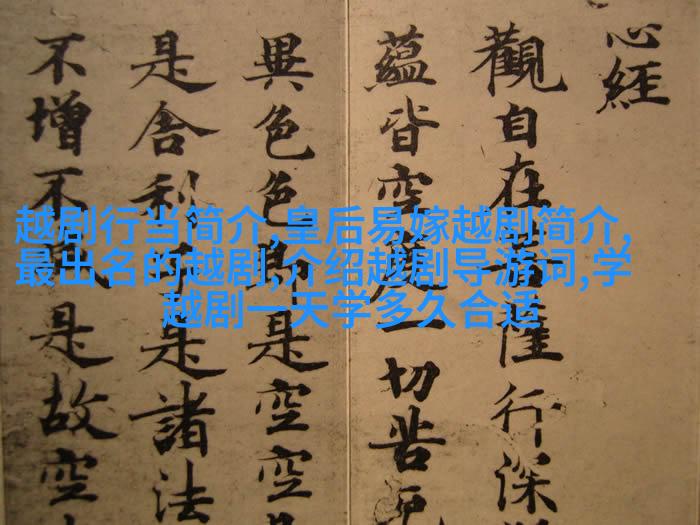 心經
觀自在菩薩行深
蘊皆空度一切苦厄
異色色即是空空
是舍利子是諸法
不增不減是故空
越剧行当简介,皇后易嫁越剧简介,
最出名的越剧,介绍越剧导游词,学
越剧一天学多久合适